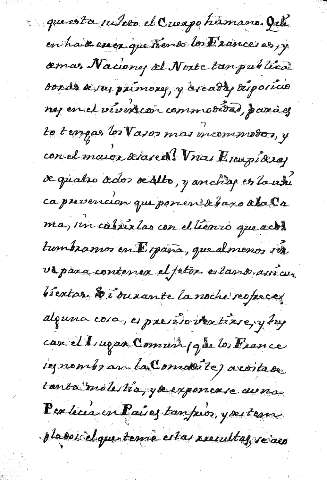 que esta sujeto el Cuerpo humano. Qui
en ha de creer que siendo los Franceses, y
demas Naciones del Norte tan publica
dores de sus primores, y decadas disposicio
nes en el vivir con commodidad, para es
to tengan los Vasos mas incommodos, y
con el maior desaseo? Unas Escupideras
de quatro dedos de Alto, y anchas es la uni
ca prevencion que ponen debaxo de la Ca
ma, sin cabrirlas con el lienzo que acos
tumbramos en España, que al menos sir
ve para contener el fetor estando asi cu
biertas. Si durante la noche se ofrece
alguna cosa, es presiso vestirse, y bus
car el Lugar Comun (que los France
ses nombran la Comodite) a costa de
tanta molestia, y de exponerse a una
Perlecia en Paises tan frios, y destem
plados: el que teme estas resultas, se aco